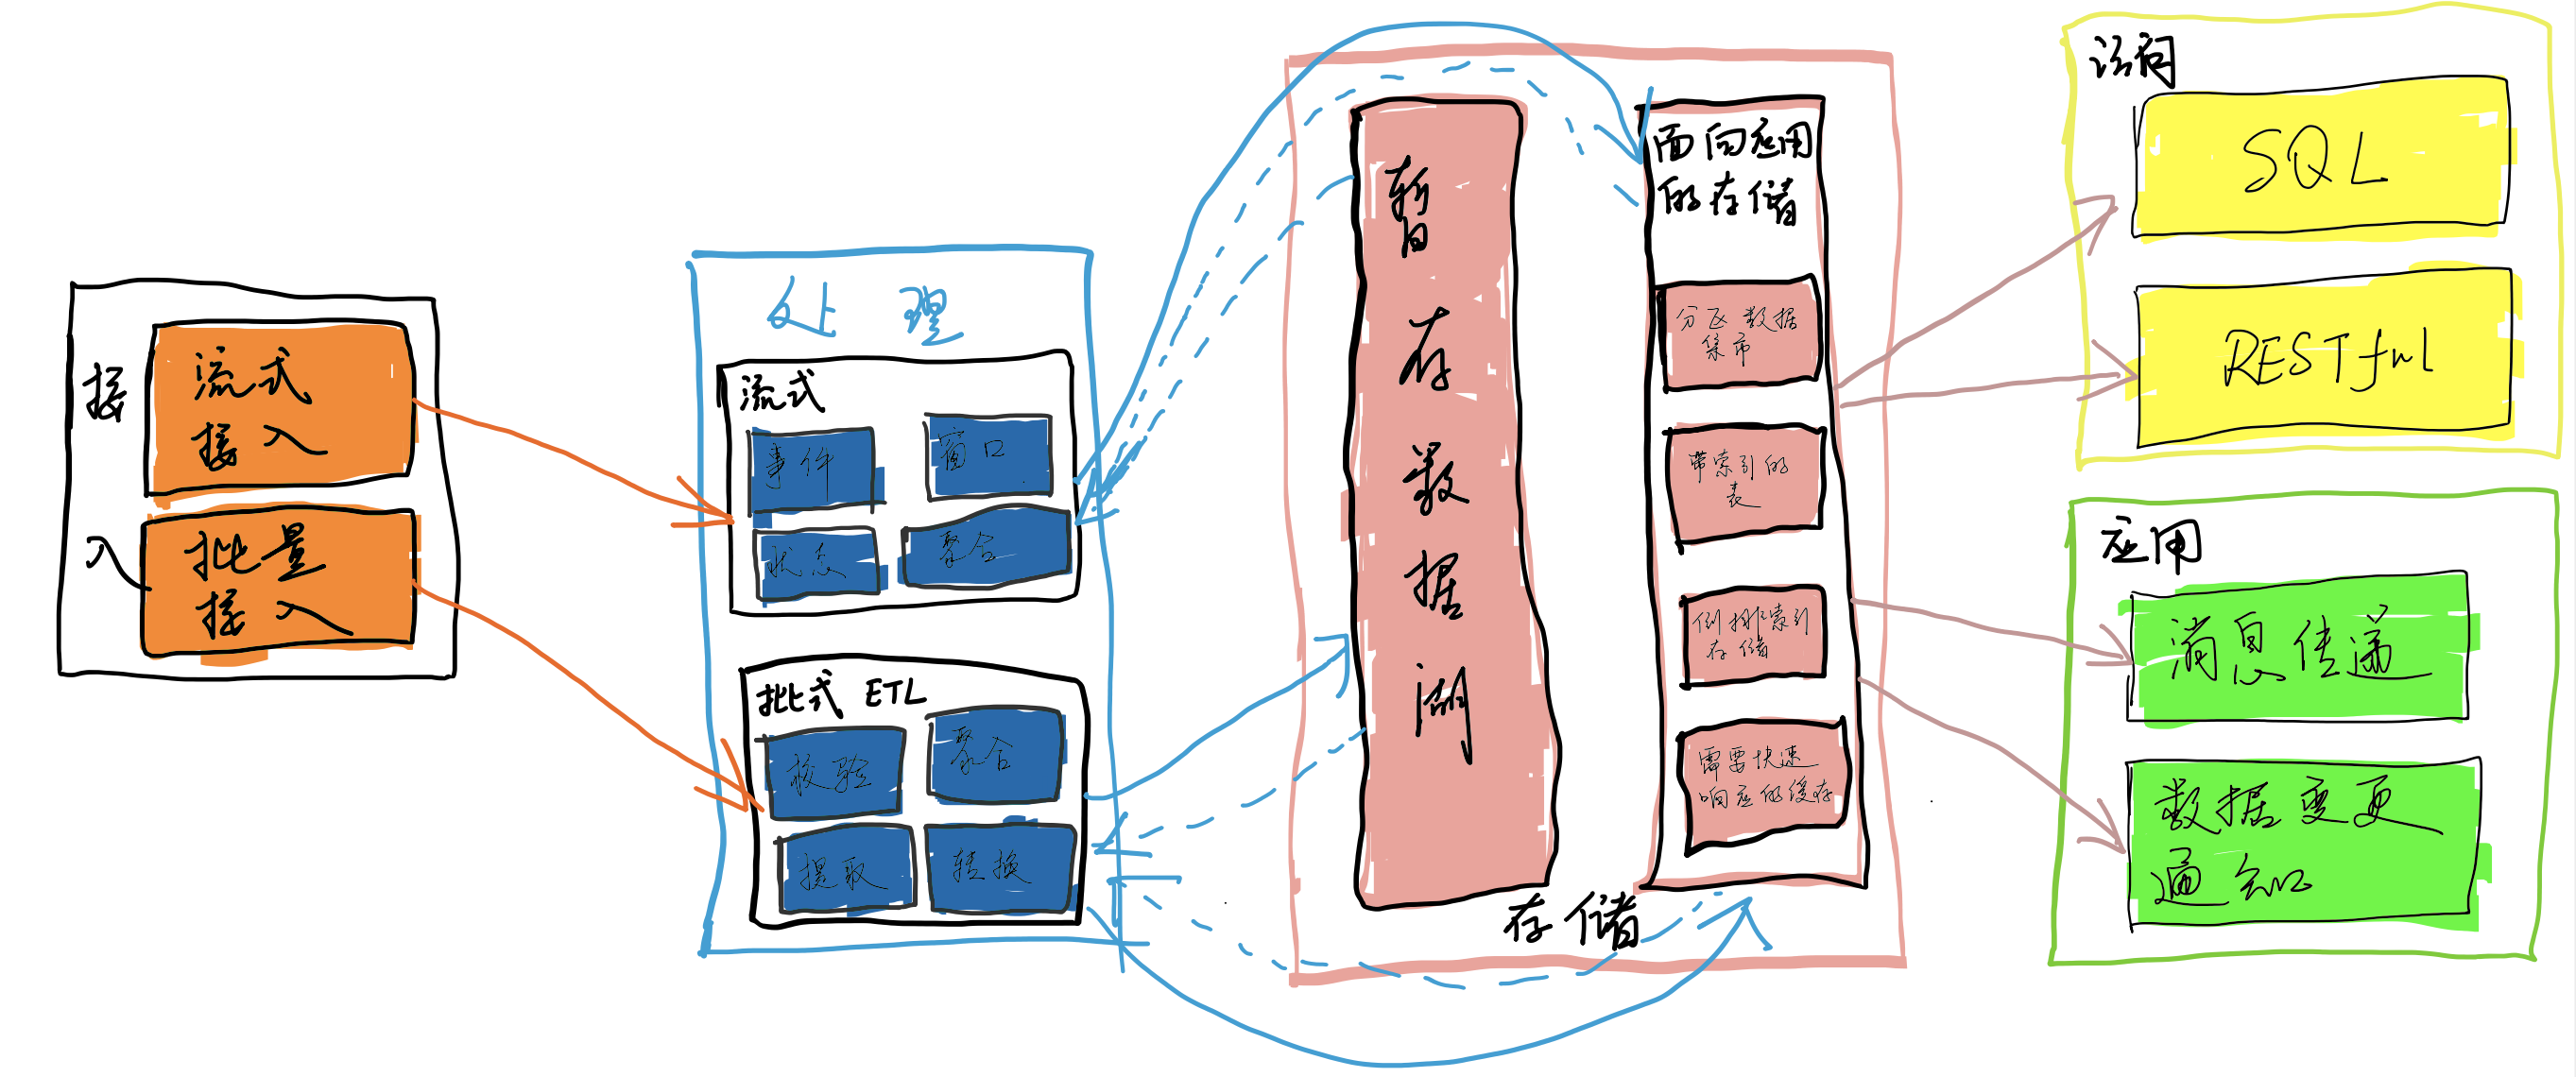 接入
流式
接入
批量
接入
处理
流式
事件
窗口
状态
聚合
批式 ETL
校验
聚合
提取
转换
暂存数据湖
面向应用
的存储
分区数据
集市
带索引的
表
倒排索引
存储
需要快速
响应的缓存
存储
访问
SQL
RESTful
应用
消息传递
数据变更
通知